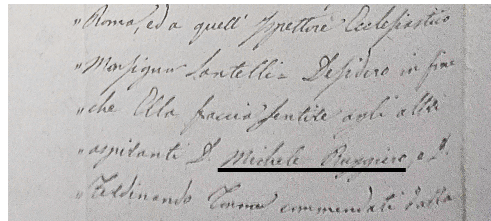 "Roma, ed a quell' Ispettore Ecclesiastico
"Monsignor Santelli = Desidero in fine
"che Ella faccia sentire agli altri
"aspiranti D. Michele Ruggiero, e D.
"Ferdinando commendati dalla